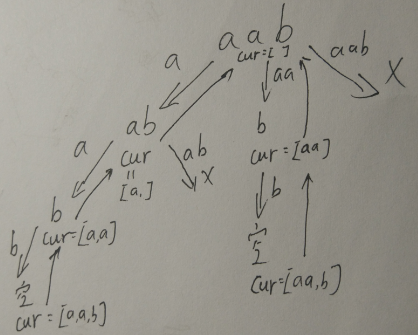 aab
cur=[ ]
a
aa
aab
X
ab
cur
=
[a,]
a
ab
X
b
cur=[aa]
b
cur=[a,a]
b
b
空
cur=[a,a,b]
空
cur=[aa,b]